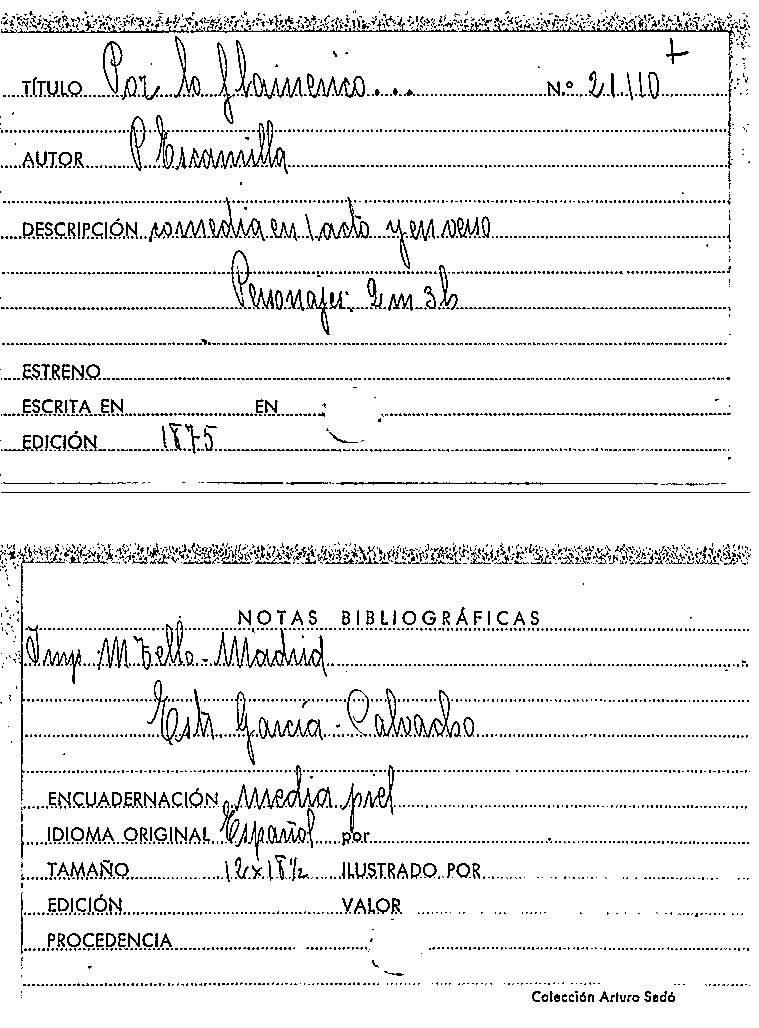 TÍTULO Por lo flamenco... N.º 21110 +
AUTOR P Escamilla
DESCRIPCIÓN comedia en 1 acto y en verso
Personajes: 2 m 3 h
ESTRENO
ESCRITA EN EN
EDICIÓN 1875
NOTAS BIBLIOGRÁFICAS
Imp M Tello - Madrid
Estr García - Calvacho
ENCUADERNACIÓN media piel
IDIOMA ORIGINAL Español por
TAMAÑO 12x18½ ILUSTRADO POR
EDICIÓN VALOR
PROCEDENCIA
Colección Arturo Sedó